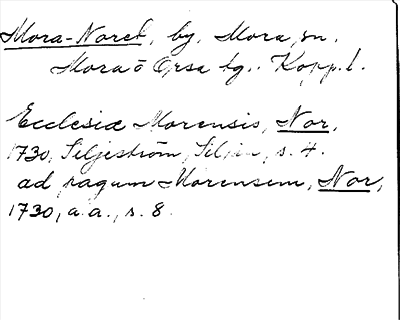 Mora-Noret, by, Mora sn.
Mora o Orsa tg. Kopp. l.
Ecclesiæ Morensis, Nor,
1730, Siljeström, Siljan, s. 4.
ad pagum Morensem, Nor,
1730, a.a., s. 8.